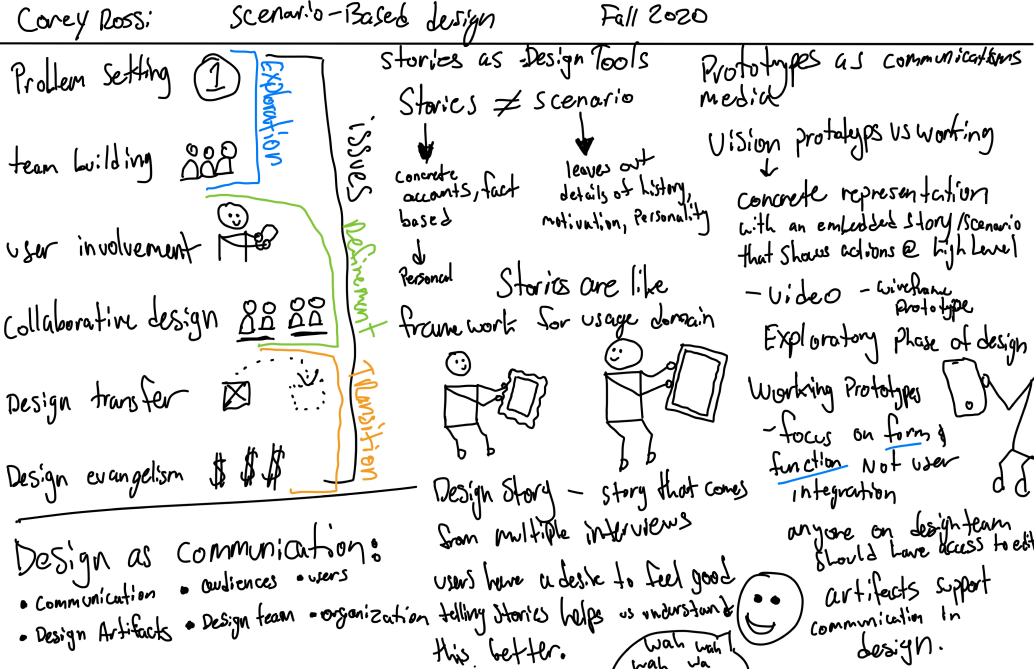 Corey Rossi Scenario-Based design Fall 2020
Problem Setting 1
team building
user involvement
Collaborative design
Design transfer
Design evangelism $ $ $
Exploration
issues
Refinement
Transition
Design as communication:
• Communication • audiences • users
• Design Artifacts • Design team • organization
Stories as Design Tools
Stories ≠ scenario
concrete
accounts, fact
based
Personal
leaves out
details of history,
motivation, Personality
Stories are like
framework for usage domain
Design Story – story that comes
from multiple interviews
users have a desire to feel good
telling stories helps us understand
this better.
wah wah
wah wa
Prototypes as communications
media
Vision prototyps vs working
concrete representation
with an embedded story/scenario
that shows actions @ high Level
- video - wireframe
prototype
Exploratory Phase of design
Working Prototypes
- focus on form &
function Not user
integration
anyone on design team
should have access to edit
artifacts support
communication in
design.